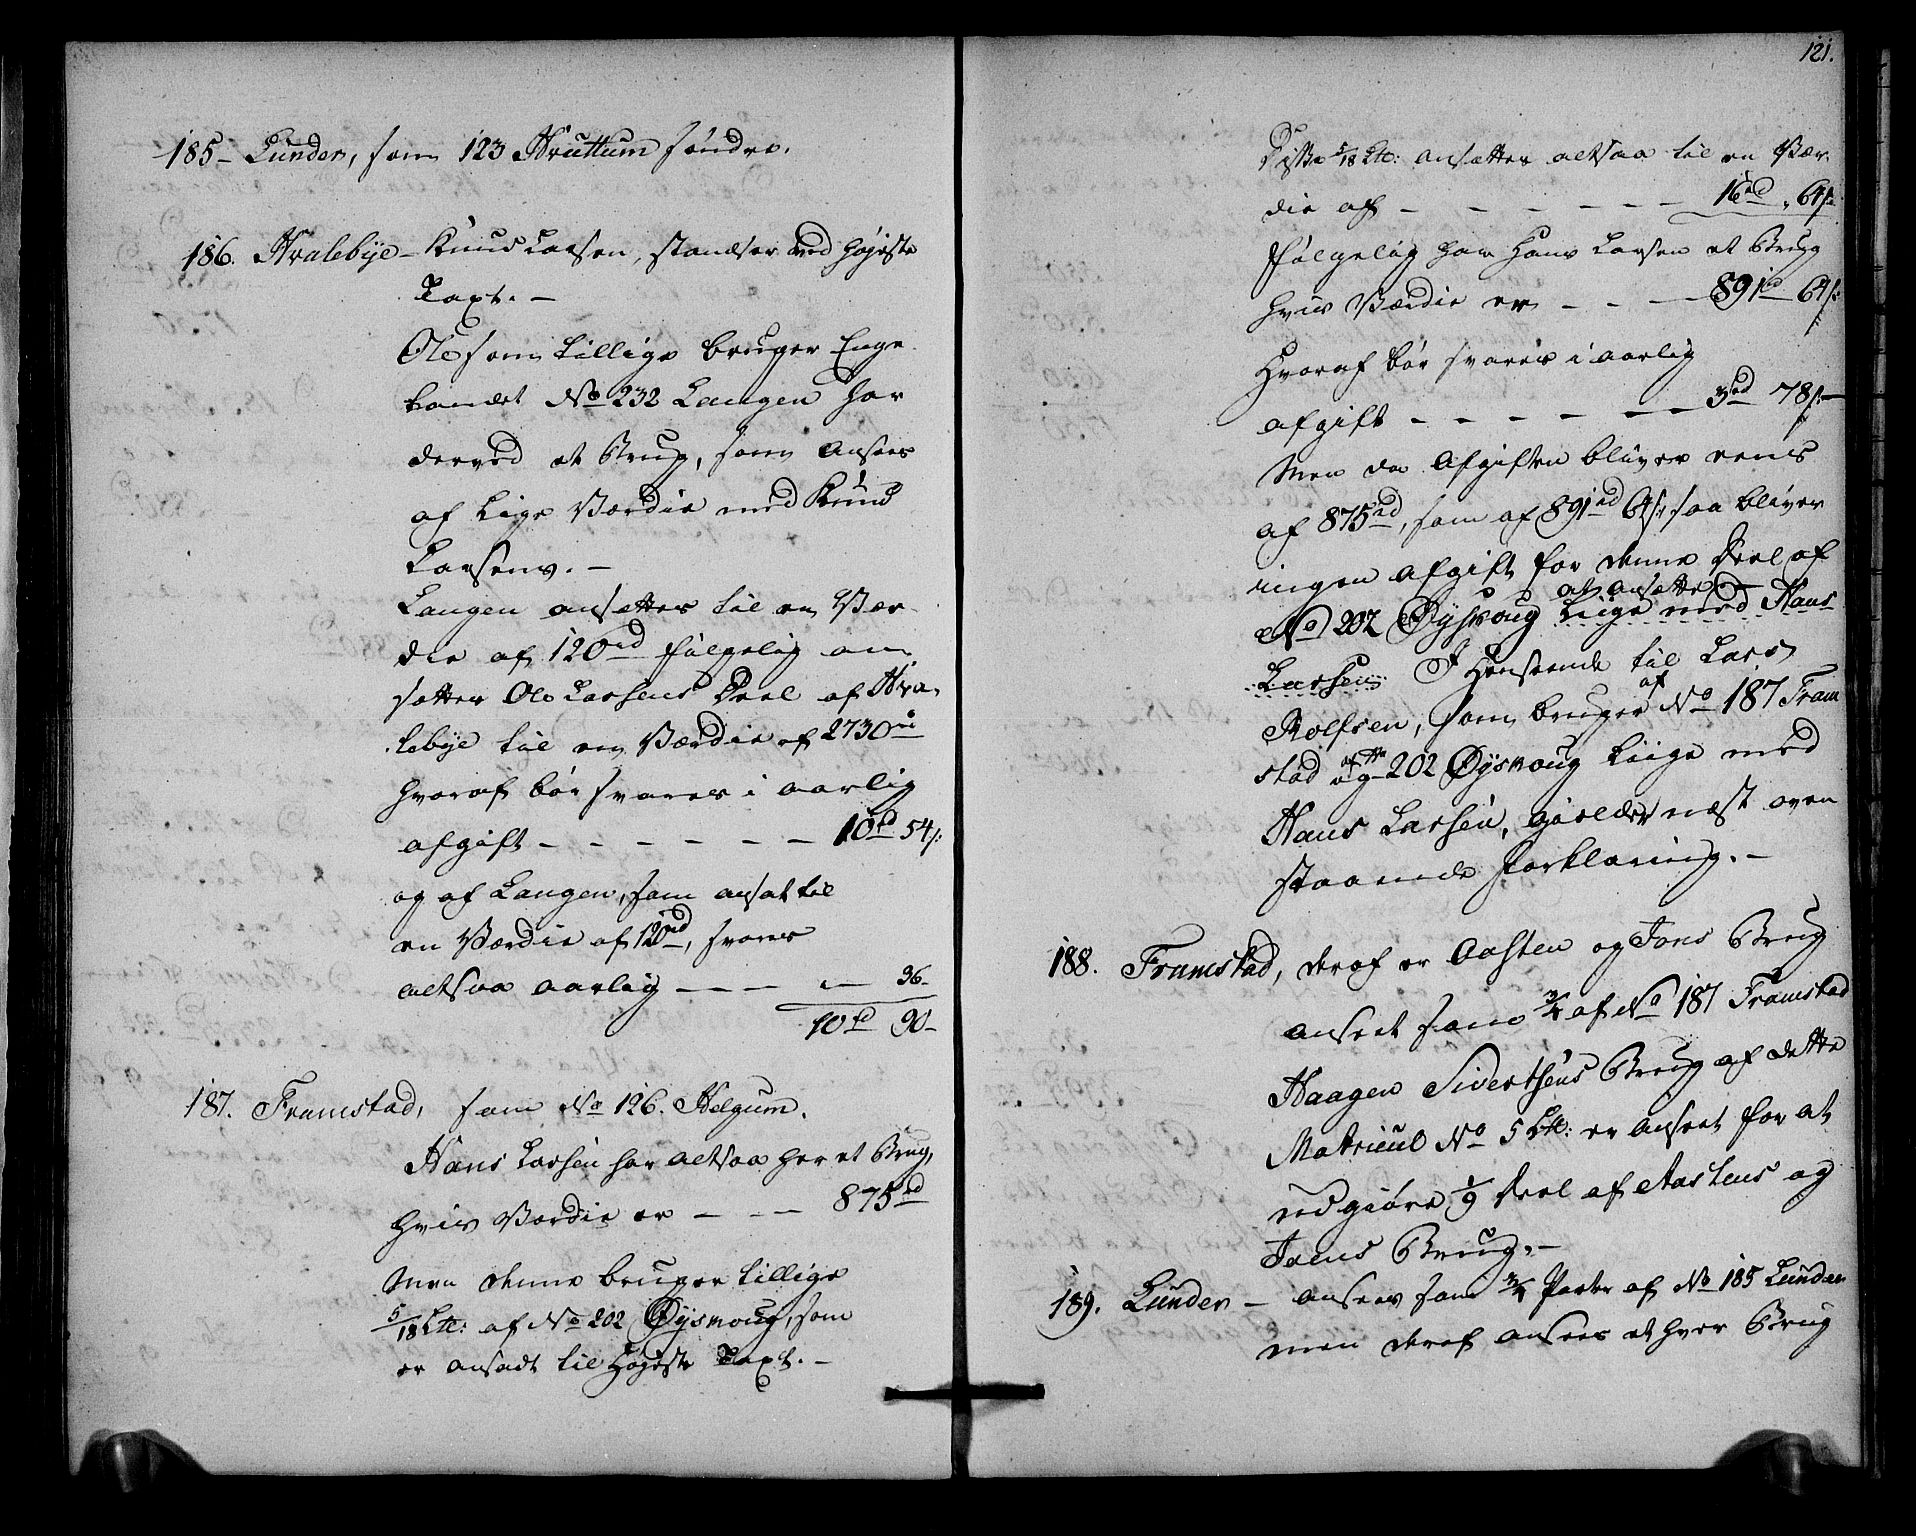 185 – Lunder, som 123 Hruttum søndre.
186. Hvalebÿe – Knud Larsen, standser ved høyeste
Taxt. –
Ole som tillige bruger Enge
landet No 232 Langen har
derved et Brug, som ansees
af lige Værdie med Knud
Larsens. –
Langen ansættes til en Vær
die af 120rd følgelig an
sættes Ole Larsens Deel af Hva
lebÿe til en Værdie af 2730rd
hvoraf bør svares i aarlig
afgift – – – – – – 10rd 54s:
og af Langen, som ansat til
en Værdie af 120rd, svares
altsaa aarlig – – – – 36 –
10rd 90 –
187. Framstad, som No 126. Helgum.
Hans Larsen har altsaa her et Brug,
hvis Værdie er – – – 875rd
Men denne bruger tillige
5/18 Ltr: af No 202 Øysvoug, som
er ansadt til Høyeste Taxt. –
121.
Disse 5/18 Ltr: ansættes altsaa til en Vær
die af – – – – – – 16rd „ 64s:
Følgelig har Hans Larsen et Brug
hvis Værdie er – – – 891rd 64s:
Hvoraf bør svares i aarlig
afgift – – – – – – 3rd 78s: –
Men da Afgiften bliver eens
af 875rd, som af 891rd 64s:, saa bliver
ingen afgift for denne Deel af
No 202 Øysvoug at ansætte lige med Hans
Larsen. I Henseende til Lars
Rolfsen, som bruger af No 187 Fram
stad og af No 202 Øysvoug liige med
Hans Larsen, gielder næst oven
staaende Forklaring. –
188. Framstad, deraf er Aasten og Joens Brug
anseet som 3/4 af No 187 Framstad
Haagen Sivertsens Brug af dette
Matricul No 5 Ltr: er anseet for at
udgiøre 1/9 Deel af Aastens og
Joens Brug. –
189. Lunder – ansees som 3/4 Parter af No 185 Lunder
men deraf ansees at hver Brug